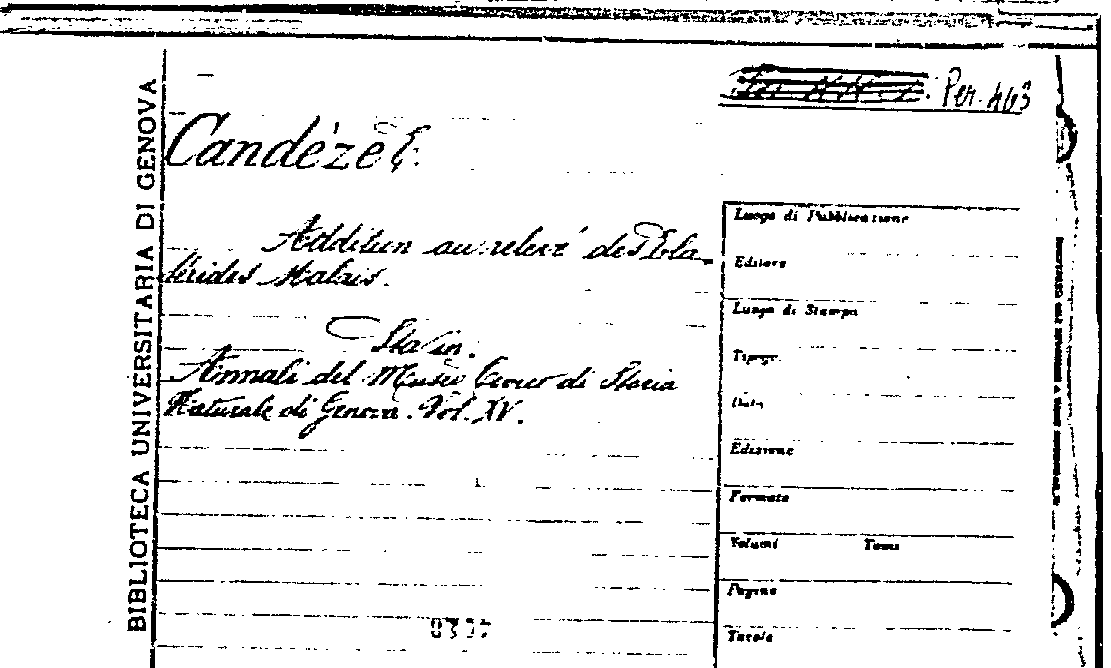 Per. 463
Candèze E.
Additien au relevé des Ela-
térides Malais.
Sta in.
Annali del Museo Civico di Storia
Naturale di Genova. Vol. XV.
BIBLIOTECA UNIVERSITARIA DI GENOVA
Luogo di Pubblicazione
Editore
Luogo di Stampa
Tipogr.
Data
Edizione
Formato
Volumi Tomi
Pagine
Tavole